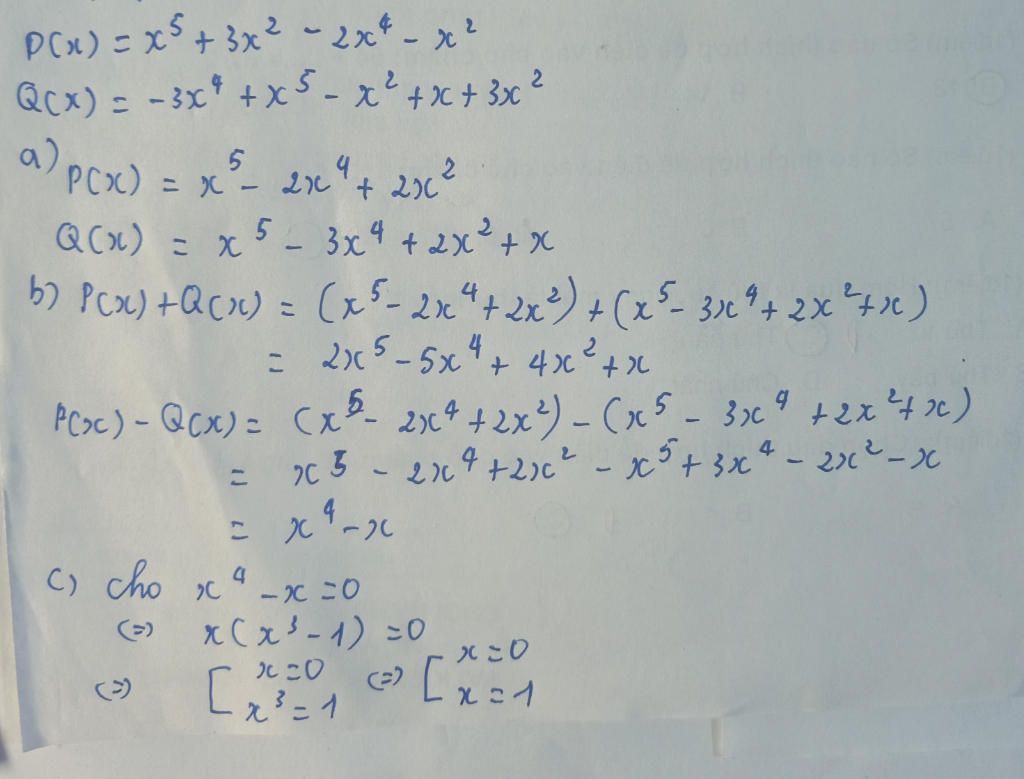 P(x) = x⁵ + 3x² - 2x⁴ - x²
Q(x) = -3x⁴ + x⁵ - x² + x + 3x²
a) P(x) = x⁵ - 2x⁴ + 2x²
Q(x) = x⁵ - 3x⁴ + 2x² + x
b) P(x) + Q(x) = (x⁵ - 2x⁴ + 2x²) + (x⁵ - 3x⁴ + 2x² + x)
= 2x⁵ - 5x⁴ + 4x² + x
P(x) - Q(x) = (x⁵ - 2x⁴ + 2x²) - (x⁵ - 3x⁴ + 2x² + x)
= x⁵ - 2x⁴ + 2x² - x⁵ + 3x⁴ - 2x² - x
= x⁴ - x
c) cho x⁴ - x = 0
(=) x(x³ - 1) = 0
(=) [ x = 0 (=) [ x = 0
x³ = 1 x = 1